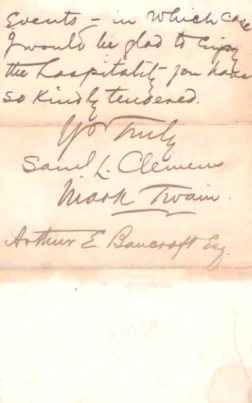 Events – in which case
I would be glad to enjoy
the hospitality you have
so kindly tendered.
Yrs Truly
Saml. L. Clemens
Mark Twain.
Arthur E Bancroft Esq.